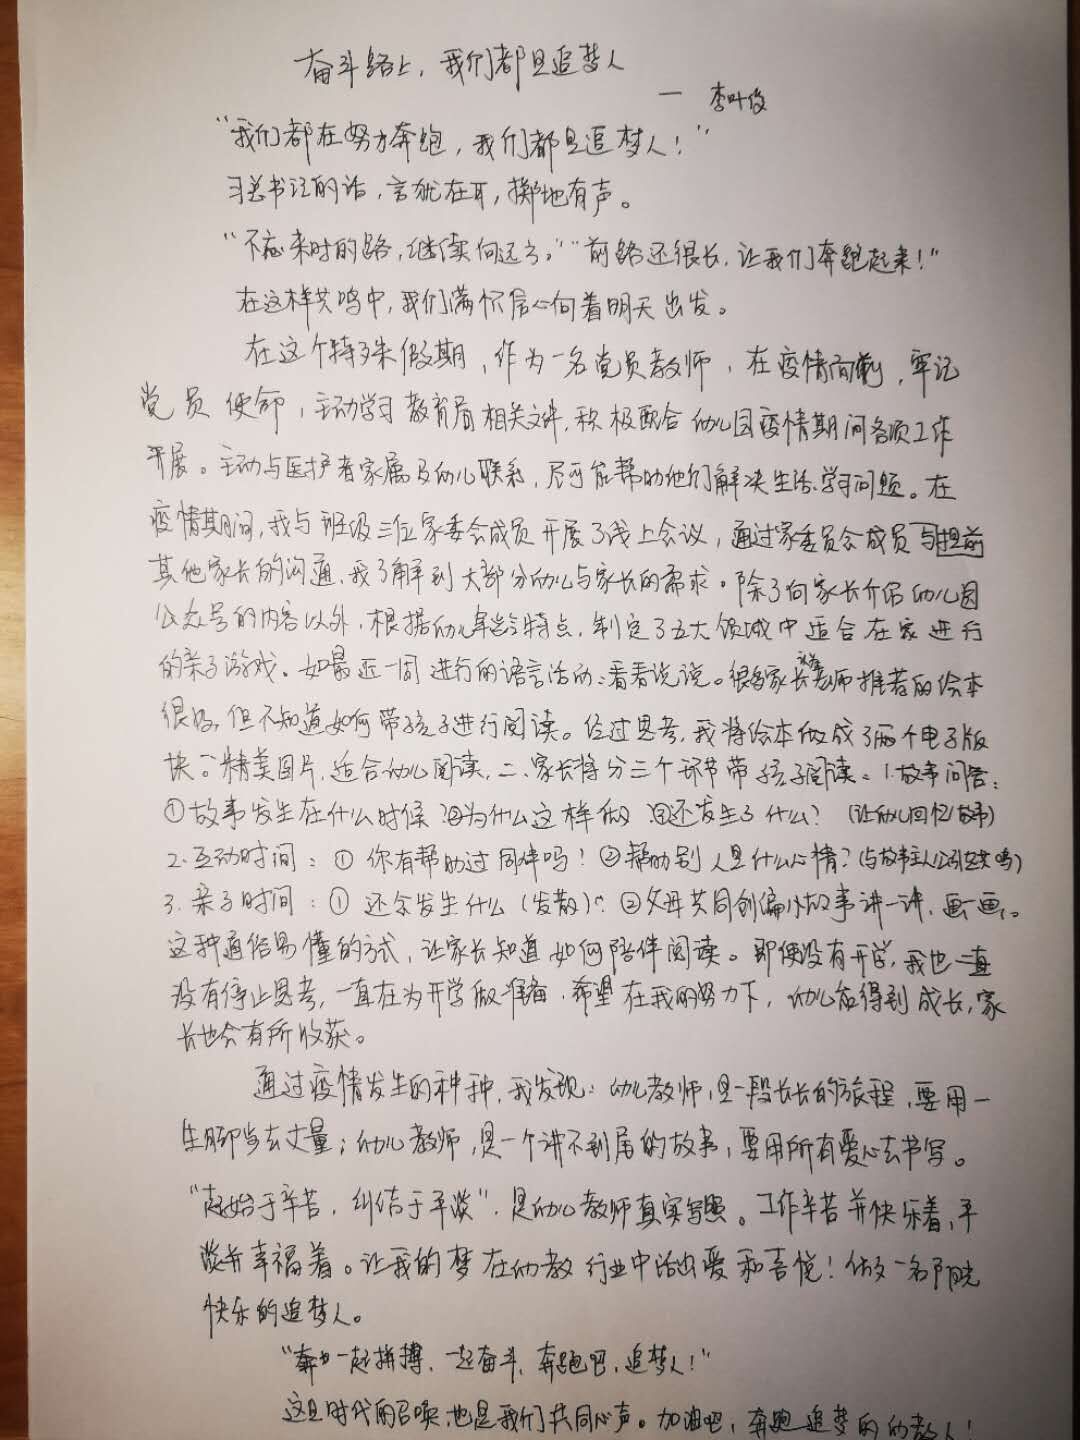 奋斗路上，我们都是追梦人
— 李叶俊
“我们都在努力奔跑，我们都是追梦人！”
习总书记的话，言犹在耳，掷地有声。
“不忘来时的路，继续向远方。”“前路还很长，让我们奔跑起来！”
在这样共鸣中，我们满怀信心向着明天出发。
在这个特殊假期，作为一名党员教师，在疫情面前，牢记
党员使命，主动学习教育局相关文件，积极配合幼儿园疫情期间各项工作
开展。主动与医护者家属及幼儿联系，尽可能帮助他们解决生活、学习问题。在
疫情期间，我与班级三位家委会成员开展了线上会议，通过家委员会成员与提前
其他家长的沟通，我了解到大部分幼儿与家长的需求。除了向家长介绍幼儿园
公众号的内容以外，根据幼儿年龄特点，制定了五大领域中适合在家进行
的亲子游戏。如最近一周进行的语言活动：看看说说。很多家长老师推荐的绘本
很好，但不知道如何带孩子进行阅读。经过思考，我将绘本做成了两个电子版
块：一、精美图片，适合幼儿阅读，二、家长将分三个环节带孩子阅读：1.故事问答：
①故事发生在什么时候？②为什么这样做？③还发生了什么？（让幼儿回忆故事）
2.互动时间：①你有帮助过同伴吗？②帮助别人是什么心情？（与故事主人公引起共鸣）
3.亲子时间：①还会发生什么（发散）？②父母共同创编小故事讲一讲、画一画。
这种通俗易懂的方式，让家长知道如何陪伴阅读。即便没有开学，我也一直
没有停止思考，一直在为开学做准备，希望在我的努力下，幼儿能得到成长，家
长也会有所收获。
通过疫情发生的种种，我发现：幼儿教师，是一段长长的旅程，要用一
生脚步去丈量；幼儿教师，是一个讲不到尾的故事，要用所有爱心去书写。
“起始于辛苦，纠结于平淡”，是幼儿教师真实写照。工作辛苦并快乐着，平
淡并幸福着。让我的梦在幼教行业中活出爱和喜悦！做一名阳光
快乐的追梦人。
“一起拼搏、一起奋斗，奔跑吧，追梦人！”
这是时代的召唤，也是我们共同心声。加油吧，奔跑追梦的幼教人！